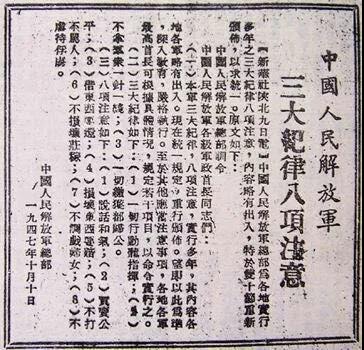 中國人民解放軍
三大紀律八項注意
『新華社陝北九日電』中國人民解放軍總部為各地實行
多年之三大紀律八項注意，內容略有出入，特於雙十節重新
頒佈，以求統一。原文如下：
中國人民解放軍總部訓令
中國人民解放軍各級軍政首長同志們：
（一）本軍三大紀律，八項注意，實行多年，其內容各
地各軍略有出入。現在統一規定，重行頒佈。望即以此為準
，深入教育，嚴格執行。至於其他應當注意事項，各地各軍
最高首長可根據具體情況，規定若干項目，以命令實行之。
（二）三大紀律如下：（1）一切行動聽指揮；（2）
不拿羣衆一針一綫；（3）一切繳獲歸公。
（三）八項注意如下：（1）說話和氣；（2）買賣公
平；（3）借東西要還；（4）損壞東西要賠；（5）不打
人罵人；（6）不損壞莊稼；（7）不調戲婦女；（8）不
虐待俘虜。
中國人民解放軍總部
一九四七年十月十日